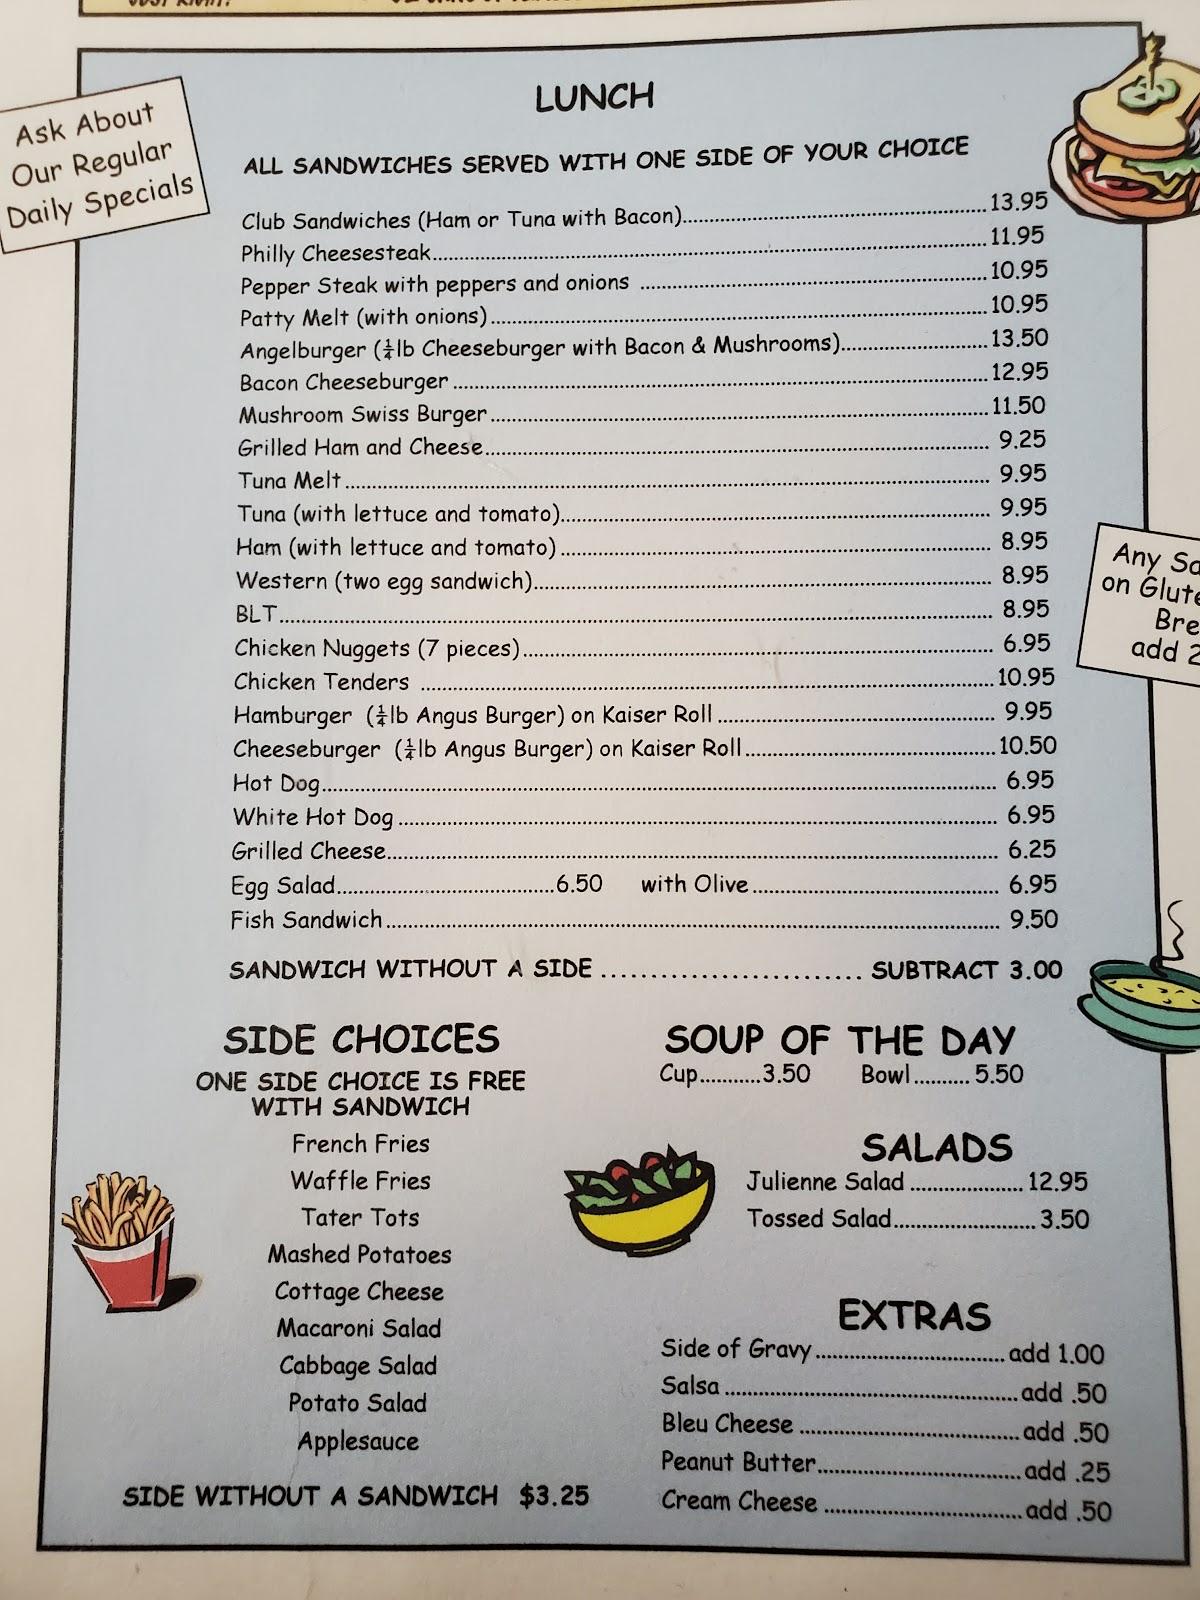 LUNCH
Ask About
Our Regular
Daily Specials
ALL SANDWICHES SERVED WITH ONE SIDE OF YOUR CHOICE
Club Sandwiches (Ham or Tuna with Bacon)..........13.95
Philly Cheesesteak..........11.95
Pepper Steak with peppers and onions ..........10.95
Patty Melt (with onions)..........10.95
Angelburger (¼lb Cheeseburger with Bacon & Mushrooms)..........13.50
Bacon Cheeseburger..........12.95
Mushroom Swiss Burger..........11.50
Grilled Ham and Cheese.......... 9.25
Tuna Melt.......... 9.95
Tuna (with lettuce and tomato).......... 9.95
Ham (with lettuce and tomato).......... 8.95
Western (two egg sandwich).......... 8.95
BLT.......... 8.95
Chicken Nuggets (7 pieces).......... 6.95
Chicken Tenders ..........10.95
Hamburger (¼lb Angus Burger) on Kaiser Roll.......... 9.95
Cheeseburger (¼lb Angus Burger) on Kaiser Roll..........10.50
Hot Dog.......... 6.95
White Hot Dog.......... 6.95
Grilled Cheese.......... 6.25
Egg Salad..........6.50 with Olive.......... 6.95
Fish Sandwich.......... 9.50
SANDWICH WITHOUT A SIDE .......... SUBTRACT 3.00
Any
on
add
SIDE CHOICES
ONE SIDE CHOICE IS FREE
WITH SANDWICH
French Fries
Waffle Fries
Tater Tots
Mashed Potatoes
Cottage Cheese
Macaroni Salad
Cabbage Salad
Potato Salad
Applesauce
SIDE WITHOUT A SANDWICH $3.25
SOUP OF THE DAY
Cup..........3.50 Bowl..........5.50
SALADS
Julienne Salad..........12.95
Tossed Salad..........3.50
EXTRAS
Side of Gravy..........add 1.00
Salsa..........add .50
Bleu Cheese..........add .50
Peanut Butter..........add .25
Cream Cheese..........add .50